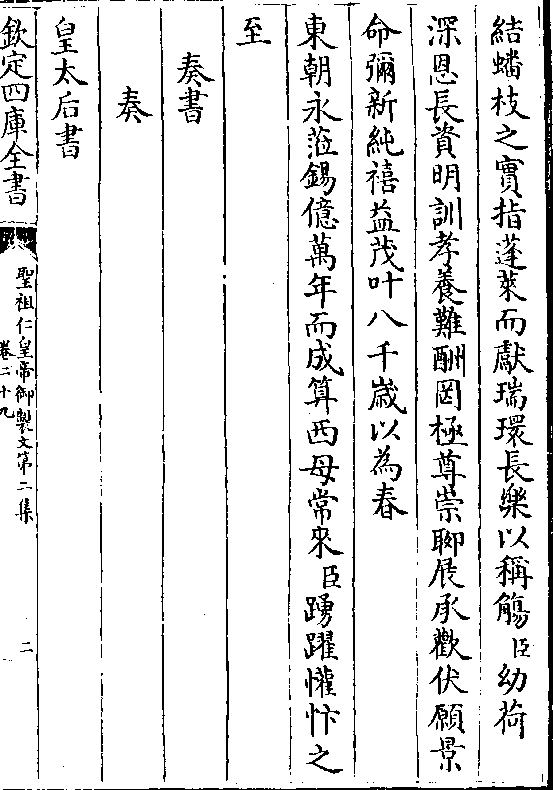 結蟠枝之實指蓬萊而獻瑞環長樂以稱觴臣幼荷
深恩長資明訓孝養難酬罔極尊崇聊展承歡伏願景
命彌新純禧益茂叶八千歲以為春
東朝永蒞錫億萬年而成算西母常來臣踴躍懽忭之
至
奏書
奏
皇太后書
欽定四庫全書
聖祖仁皇帝御製文第二集
卷二十九
二